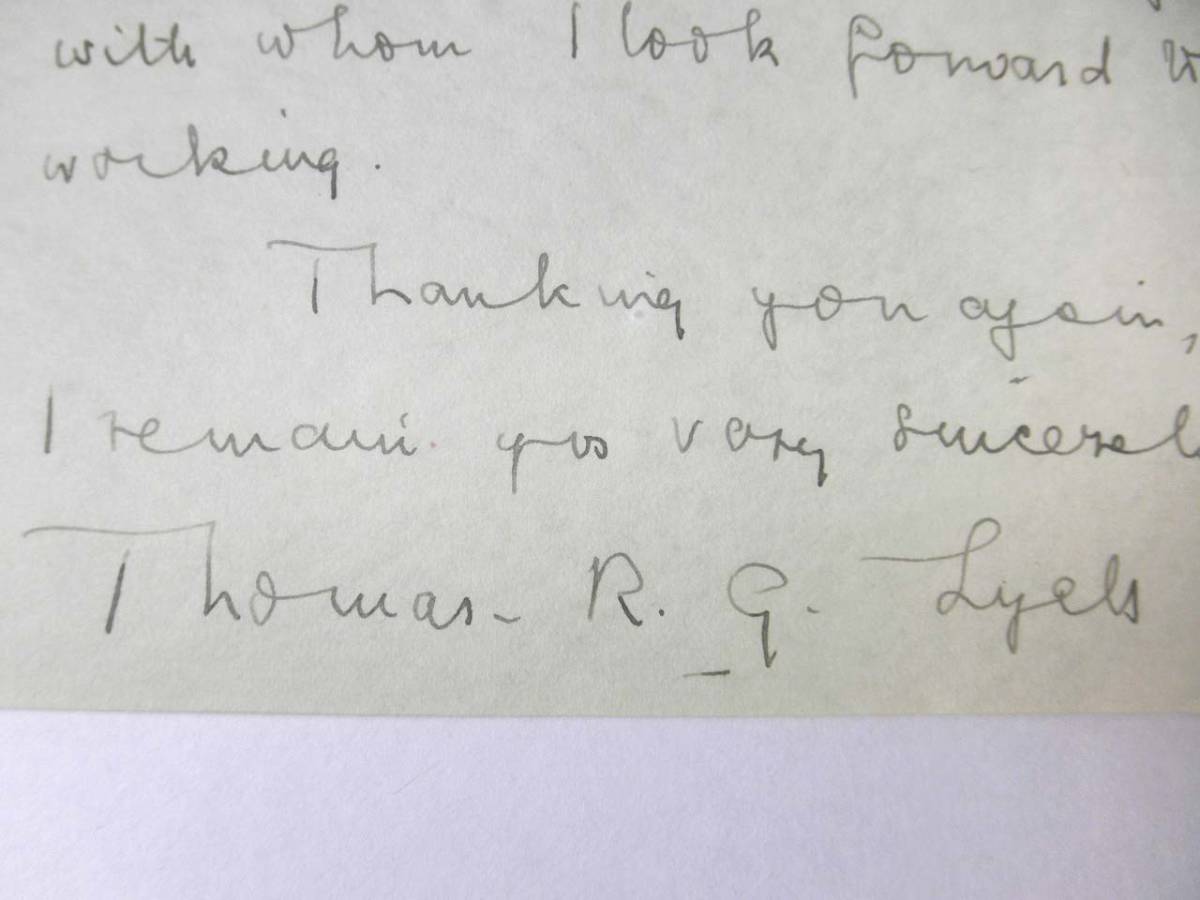 with whom I look forward to
working.
Thanking you again,
I remain yrs very sincerel
Thomas R. G. Lyell